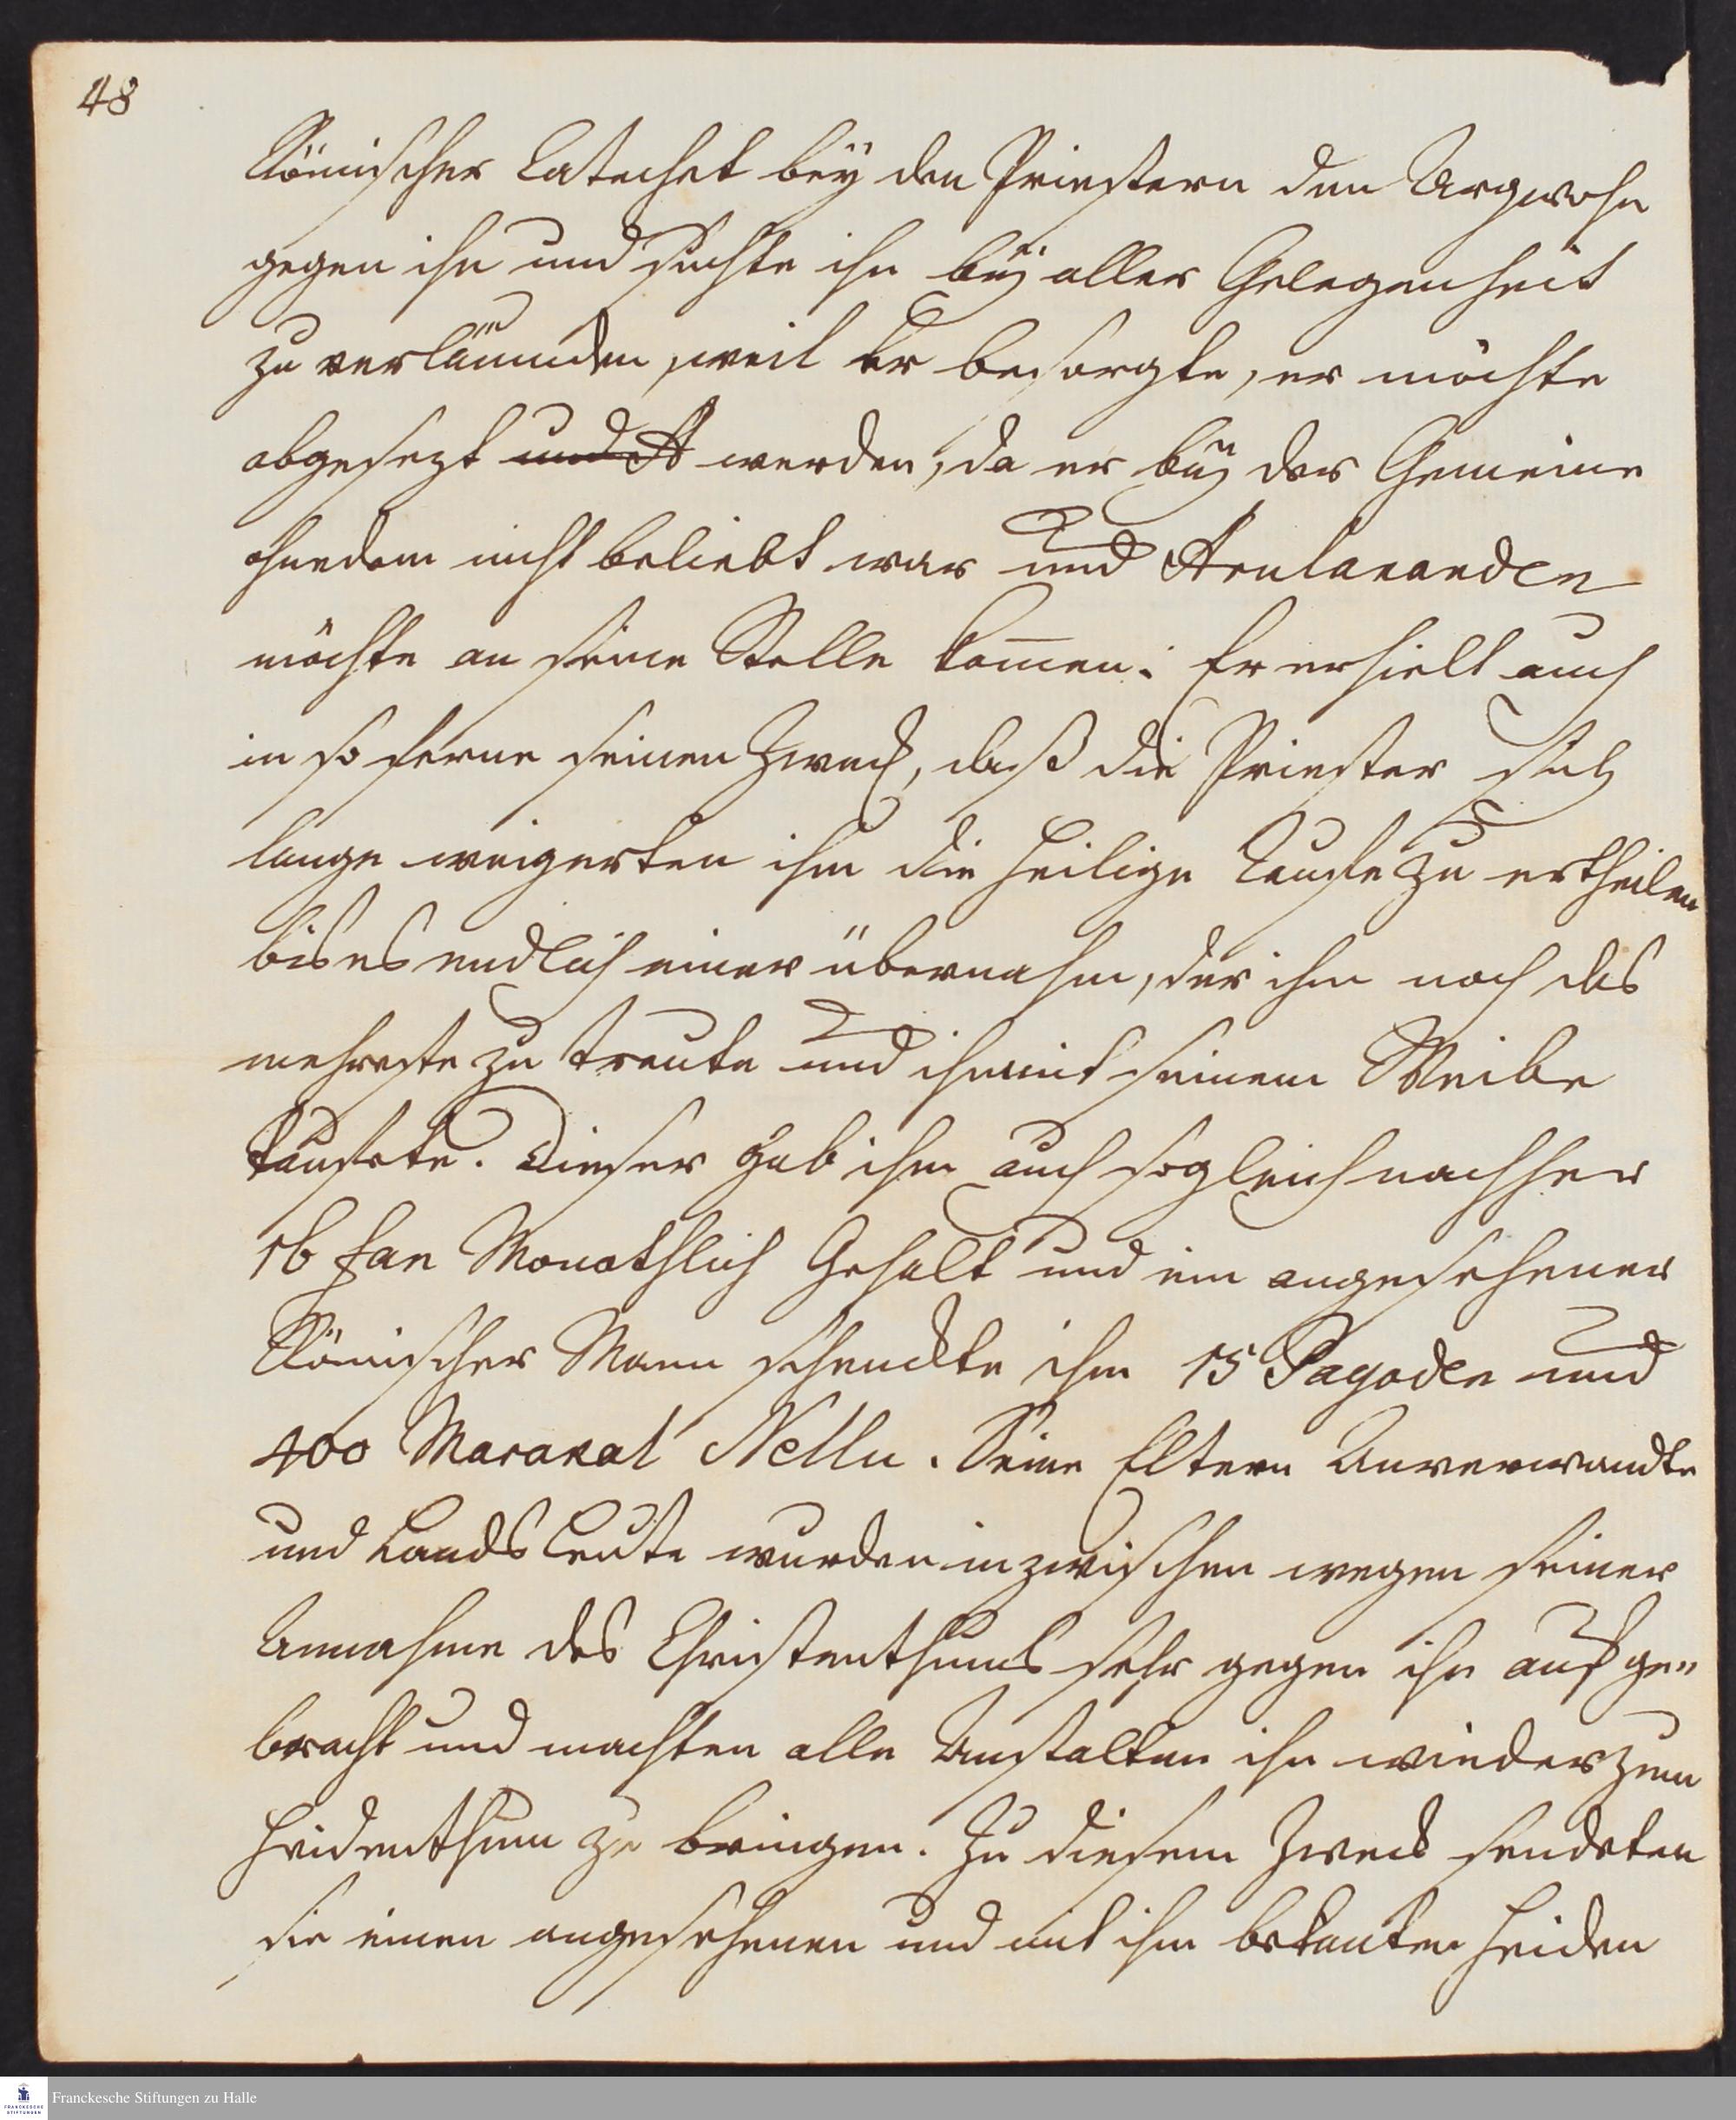 48
Römischer Catechet bey den Priestern den Argwohn
gegen ihn und suchte ihn bey aller Gelegenheit
zu verläumden, weil er besorgte, er möchte
abgesezt und A werden, da er bey der Gemeine
ohnedem nicht beliebt war und Arulananden
möchte an seine Stelle kom̄en. Er erhielt auch
in so ferne seinen Zweck, daß die Priester sich
lange weigerten ihm die heilige Taufe zu ertheilen
bis es endlich einer übernahm, der ihm noch das
mehreste zu traute und ihn mit seinem Weibe
taufete. Dieser gab ihm auch sogleich nachher
16 fan Monathlich Gehalt und ein angesehener
Römischer Mann schenckte ihm 15 Pagoden und
400 Marakal Nellu. Seine Eltern Anverwandte
und Landsleute wurden inzwischen wegen seiner
Annahme des Christenthums sehr gegen ihn aufge„
bracht und machten alle Anstalten ihn wieder zum
Heidenthum zu bringen. Zu diesem Zweck sendeten
sie einen angesehenen und mit ihm bekanten Heiden
Franckesche Stiftungen zu Halle
FRANCKESCHE
STIFTUNGEN